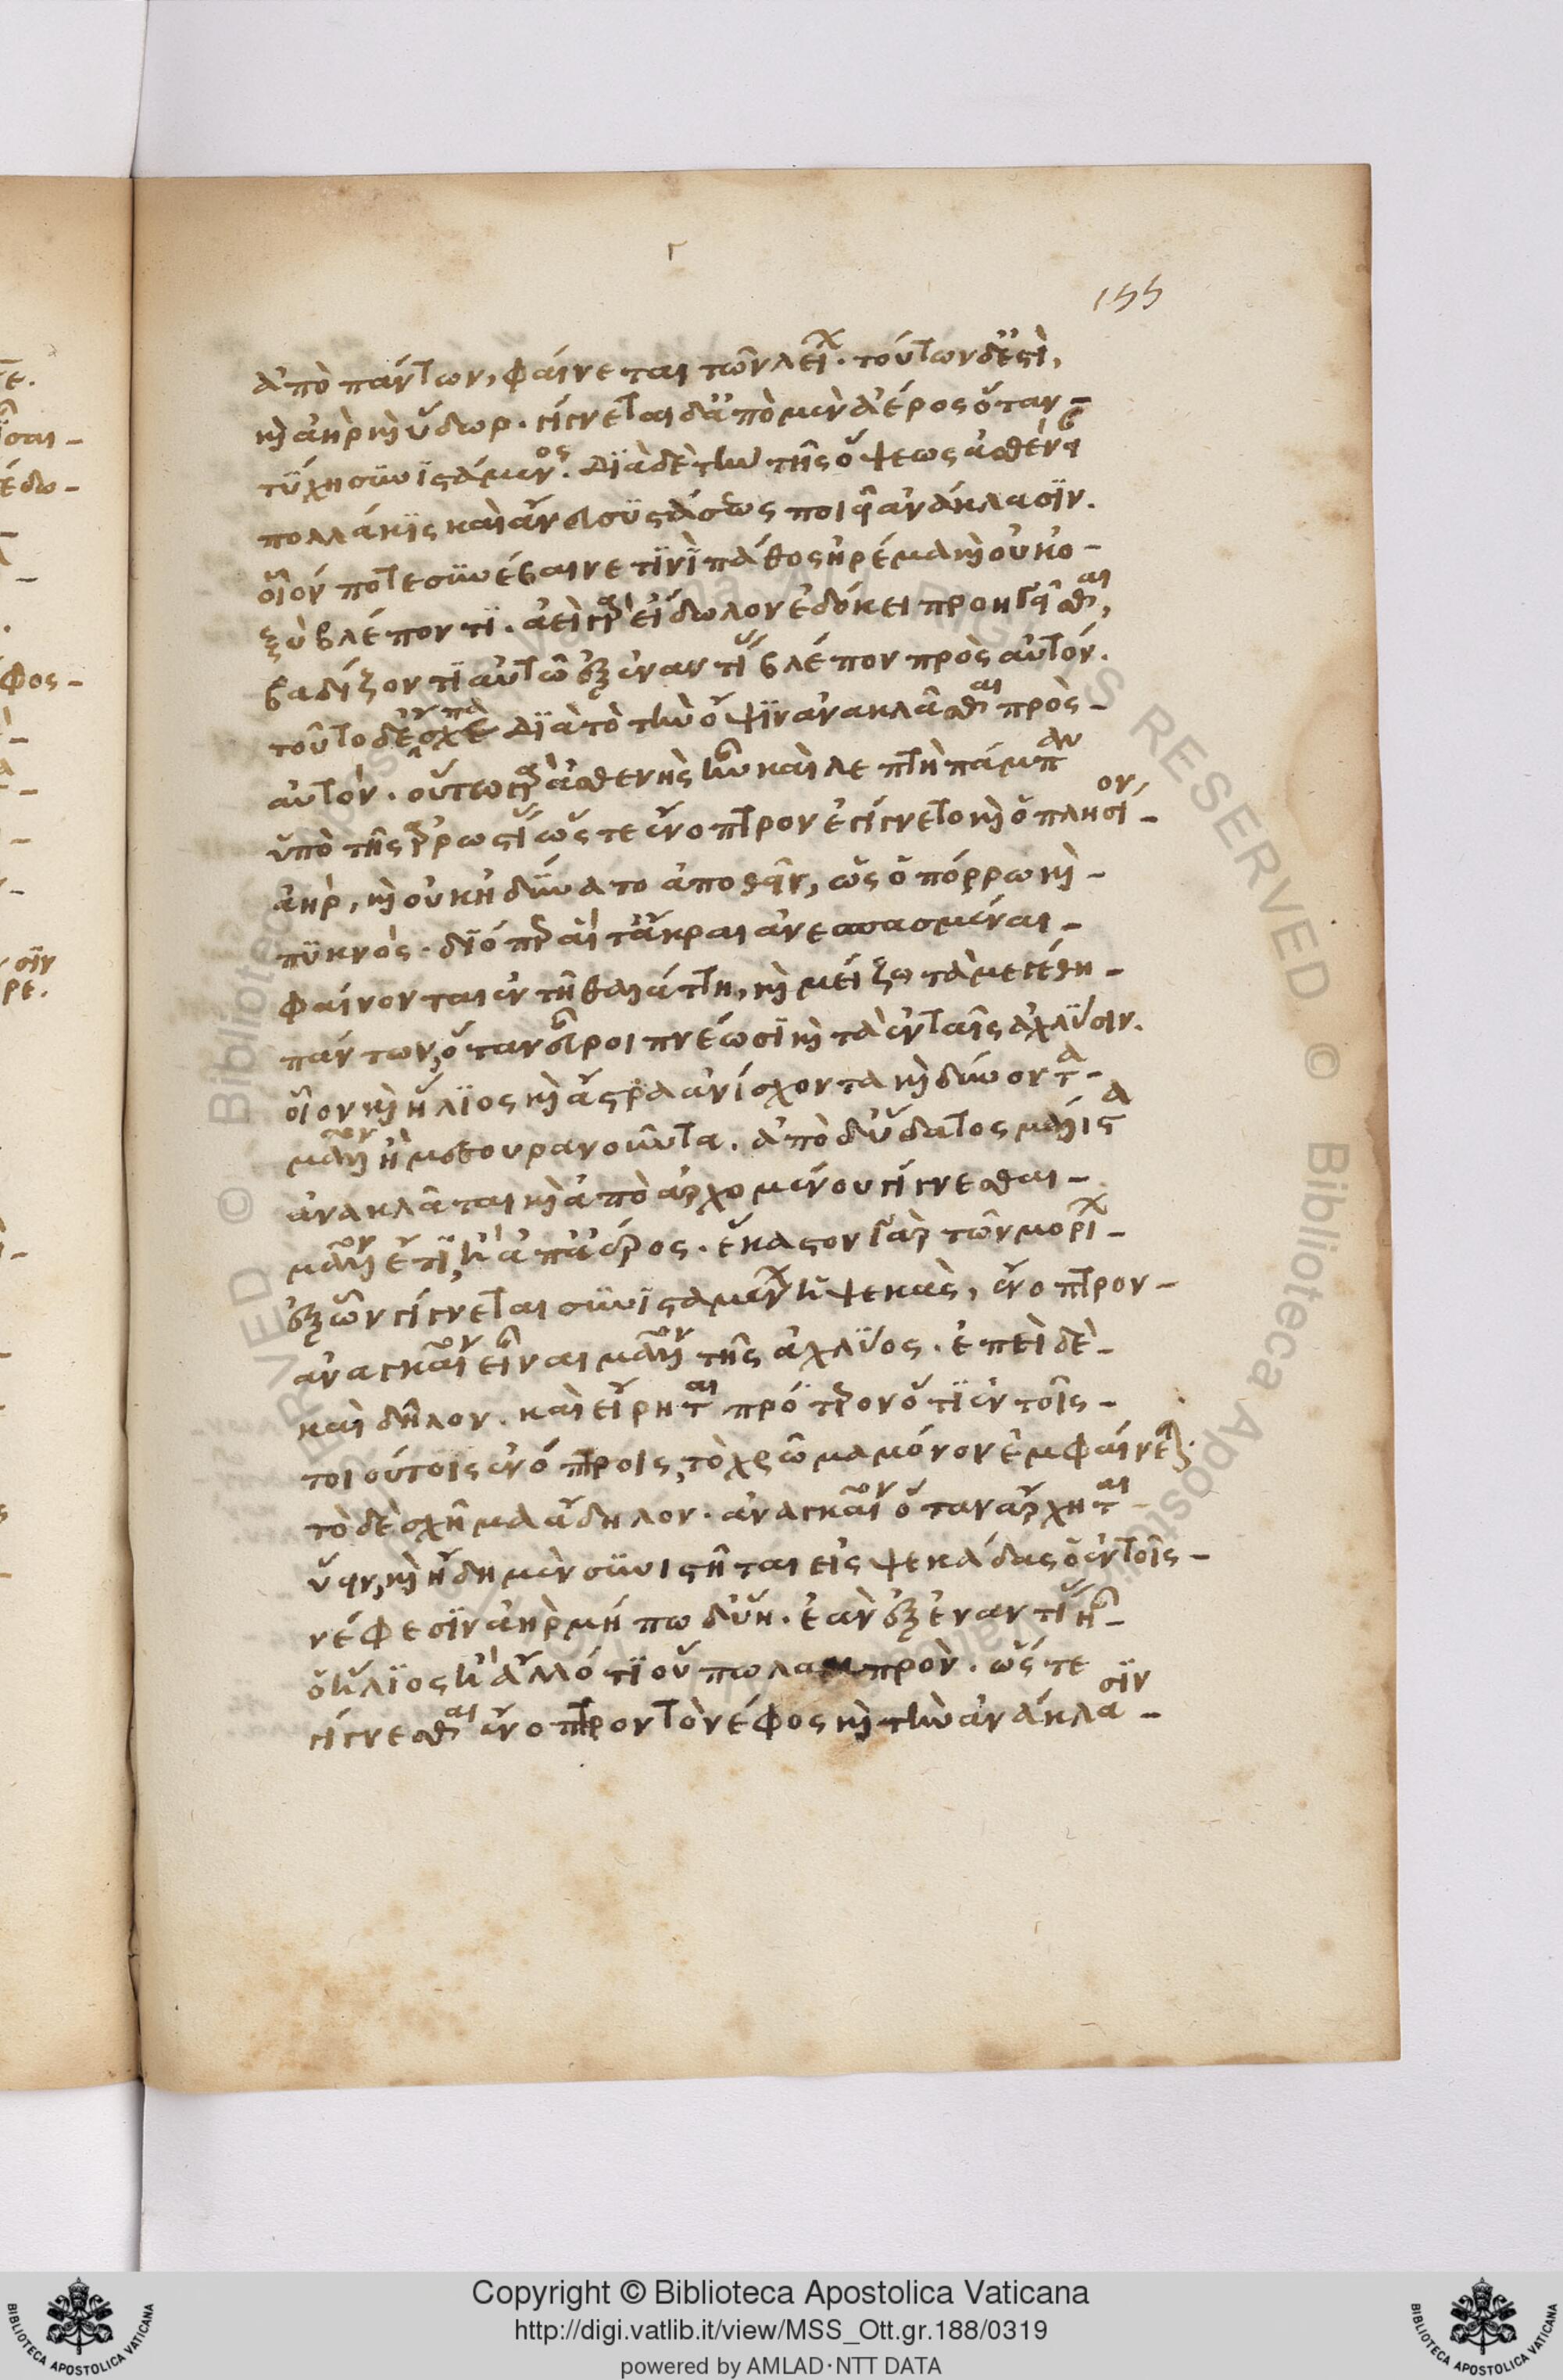 155
ἀπὸ πάντων, φαίνεται τῶν λείων. τούτων δ' ἐστὶ,
καὶ ἀὴρ καὶ ὕδωρ. γίγνεται δ' ἀπὸ μὲν ἀέρος ὅταν
τύχη συνιστάμενος. διὰ δὲ τὴν τῆς ὄψεως ἀσθένειαν
πολλάκις καὶ ἄνευ συστάσεως ποιεῖ ἀνάκλασιν.
οἷόν ποτε συνέβαινέ τινι πάθος ἠρέμα καὶ οὐκ ὀ-
ξὺ βλέποντι. ἀεὶ γὰρ εἴδωλον ἐδόκει προηγεῖσθαι,
βαδίζοντι αὐτῶ ἐξ ἐναντίας βλέπον πρὸς αὐτόν.
τοῦτο δὲ διὰ τὸ τὴν ὄψιν ἀνακλᾶσθαι πρὸς
αὐτόν. οὕτω γὰρ ἀσθενὴς ἦν καὶ λεπτὴ πάμπαν
ὑπὸ τῆς ἀρρωστίας ὥστε ἔνοπτρον ἐγίγνετο καὶ ὁ πλησίον,
ἀὴρ, καὶ οὐκ ἠδύνατο ἀπωθεῖν, ὡς ὁ πόρρω καὶ
πυκνός. διόπερ αἵ τ' ἄκραι ἀνεσπασμέναι
φαίνονται ἐν τῆ θαλάττη, καὶ μείζω τὰ μεγέθη
πάντων, ὅταν εὖροι πνέωσι καὶ τὰ ἐν ταῖς ἀχλύσιν.
οἷον καὶ ἥλιος καὶ ἄστρα ἀνίσχοντα καὶ δύνοντα
μᾶλλον ἢ μεσουρανοῦντα. ἀπὸ δ' ὕδατος μάλιστα
ἀνακλᾶται καὶ ἀπὸ ἀρχομένου γίγνεσθαι
μᾶλλον ἔτι, ἢ ἀπ' ἀέρος. ἕκαστον γὰρ τῶν μορίων
ἐξ ὧν γίγνεται συνισταμένων ἡ ψεκὰς, ἔνοπτρον
ἀναγκαῖον εἶναι μᾶλλον τῆς ἀχλύος. ἐπεὶ δὲ
καὶ δῆλον. καὶ εἴρηται πρότερον ὅτι ἐν τοῖς
τοιούτοις ἐνόπτροις, τὸ χρῶμα μόνον ἐμφαίνεται.
τὸ δὲ σχῆμα ἄδηλον. ἀναγκαῖον ὅταν ἄρχηται
ὕειν, καὶ ἤδη μὲν συνιστῆται εἰς ψεκάδας ὁ ἐν τοῖς
νέφεσιν ἀὴρ μήπω δ' ὕη. ἐὰν ἐξ ἐναντίας ἦ
ὁ ἥλιος ἢ ἄλλό τι οὕτω λαμπρὸν. ὥστε
γίγνεσθαι ἔνοπτρον τὸ νέφος καὶ τὴν ἀνάκλασιν
Copyright © Biblioteca Apostolica Vaticana
http://digi.vatlib.it/view/MSS_Ott.gr.188/0319
powered by AMLAD·NTT DATA